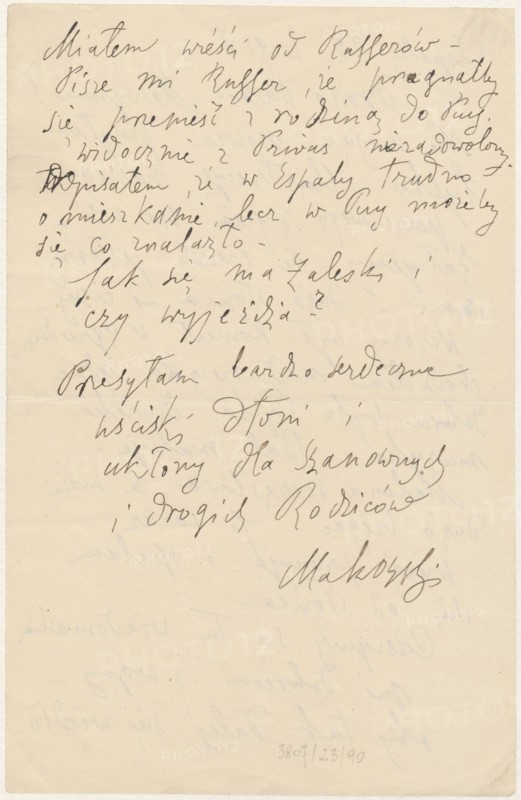 Miałem wieści od Rufferów –
Pisze mi Ruffer, że pragnąłby
się przenieść z rodziną do Puy.
widocznie z Privas niezadowolony.
Odpisałem, że w Espaly trudno
o mieszkanie, lecz w Puy możeby
się co znalazło –
Jak się ma Zaleski i
czy wyjeżdża?
Przesyłam bardzo serdeczne
uściski dłoni i
ukłony dla Szanownych
i drogich Rodziców
Makowski
3807/23/90